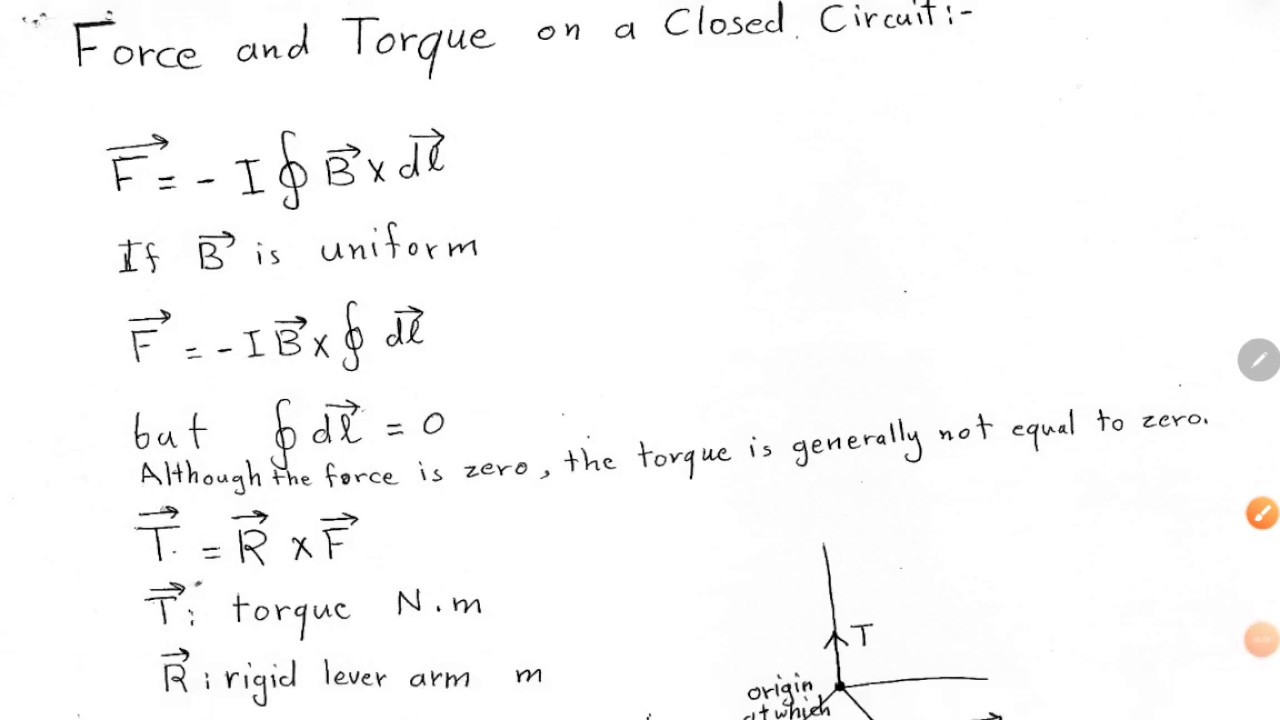 Force and Torque on a Closed Circuit:-
F⃗ = - I ∮ B⃗ x dl⃗
If B⃗ is uniform
F⃗ = - I B⃗ x ∮ dl⃗
but ∮ dl⃗ = 0
Although the force is zero, the torque is generally not equal to zero.
T⃗ = R⃗ x F⃗
T⃗: torque N.m
R⃗: rigid lever arm m
T
origin
at which